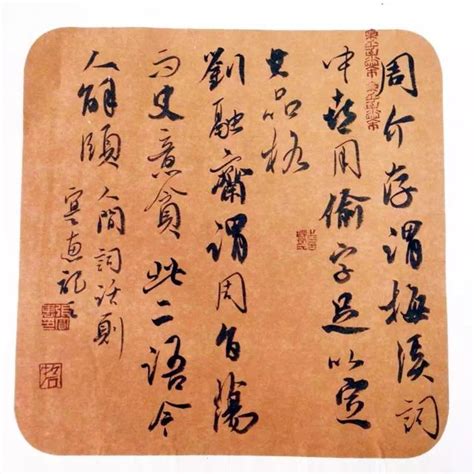 周介存謂梅溪詞
中喜用偷字足以定
其品格
劉融齋謂周旨蕩
而史意貪此二語令
人解頤 人間詞話則